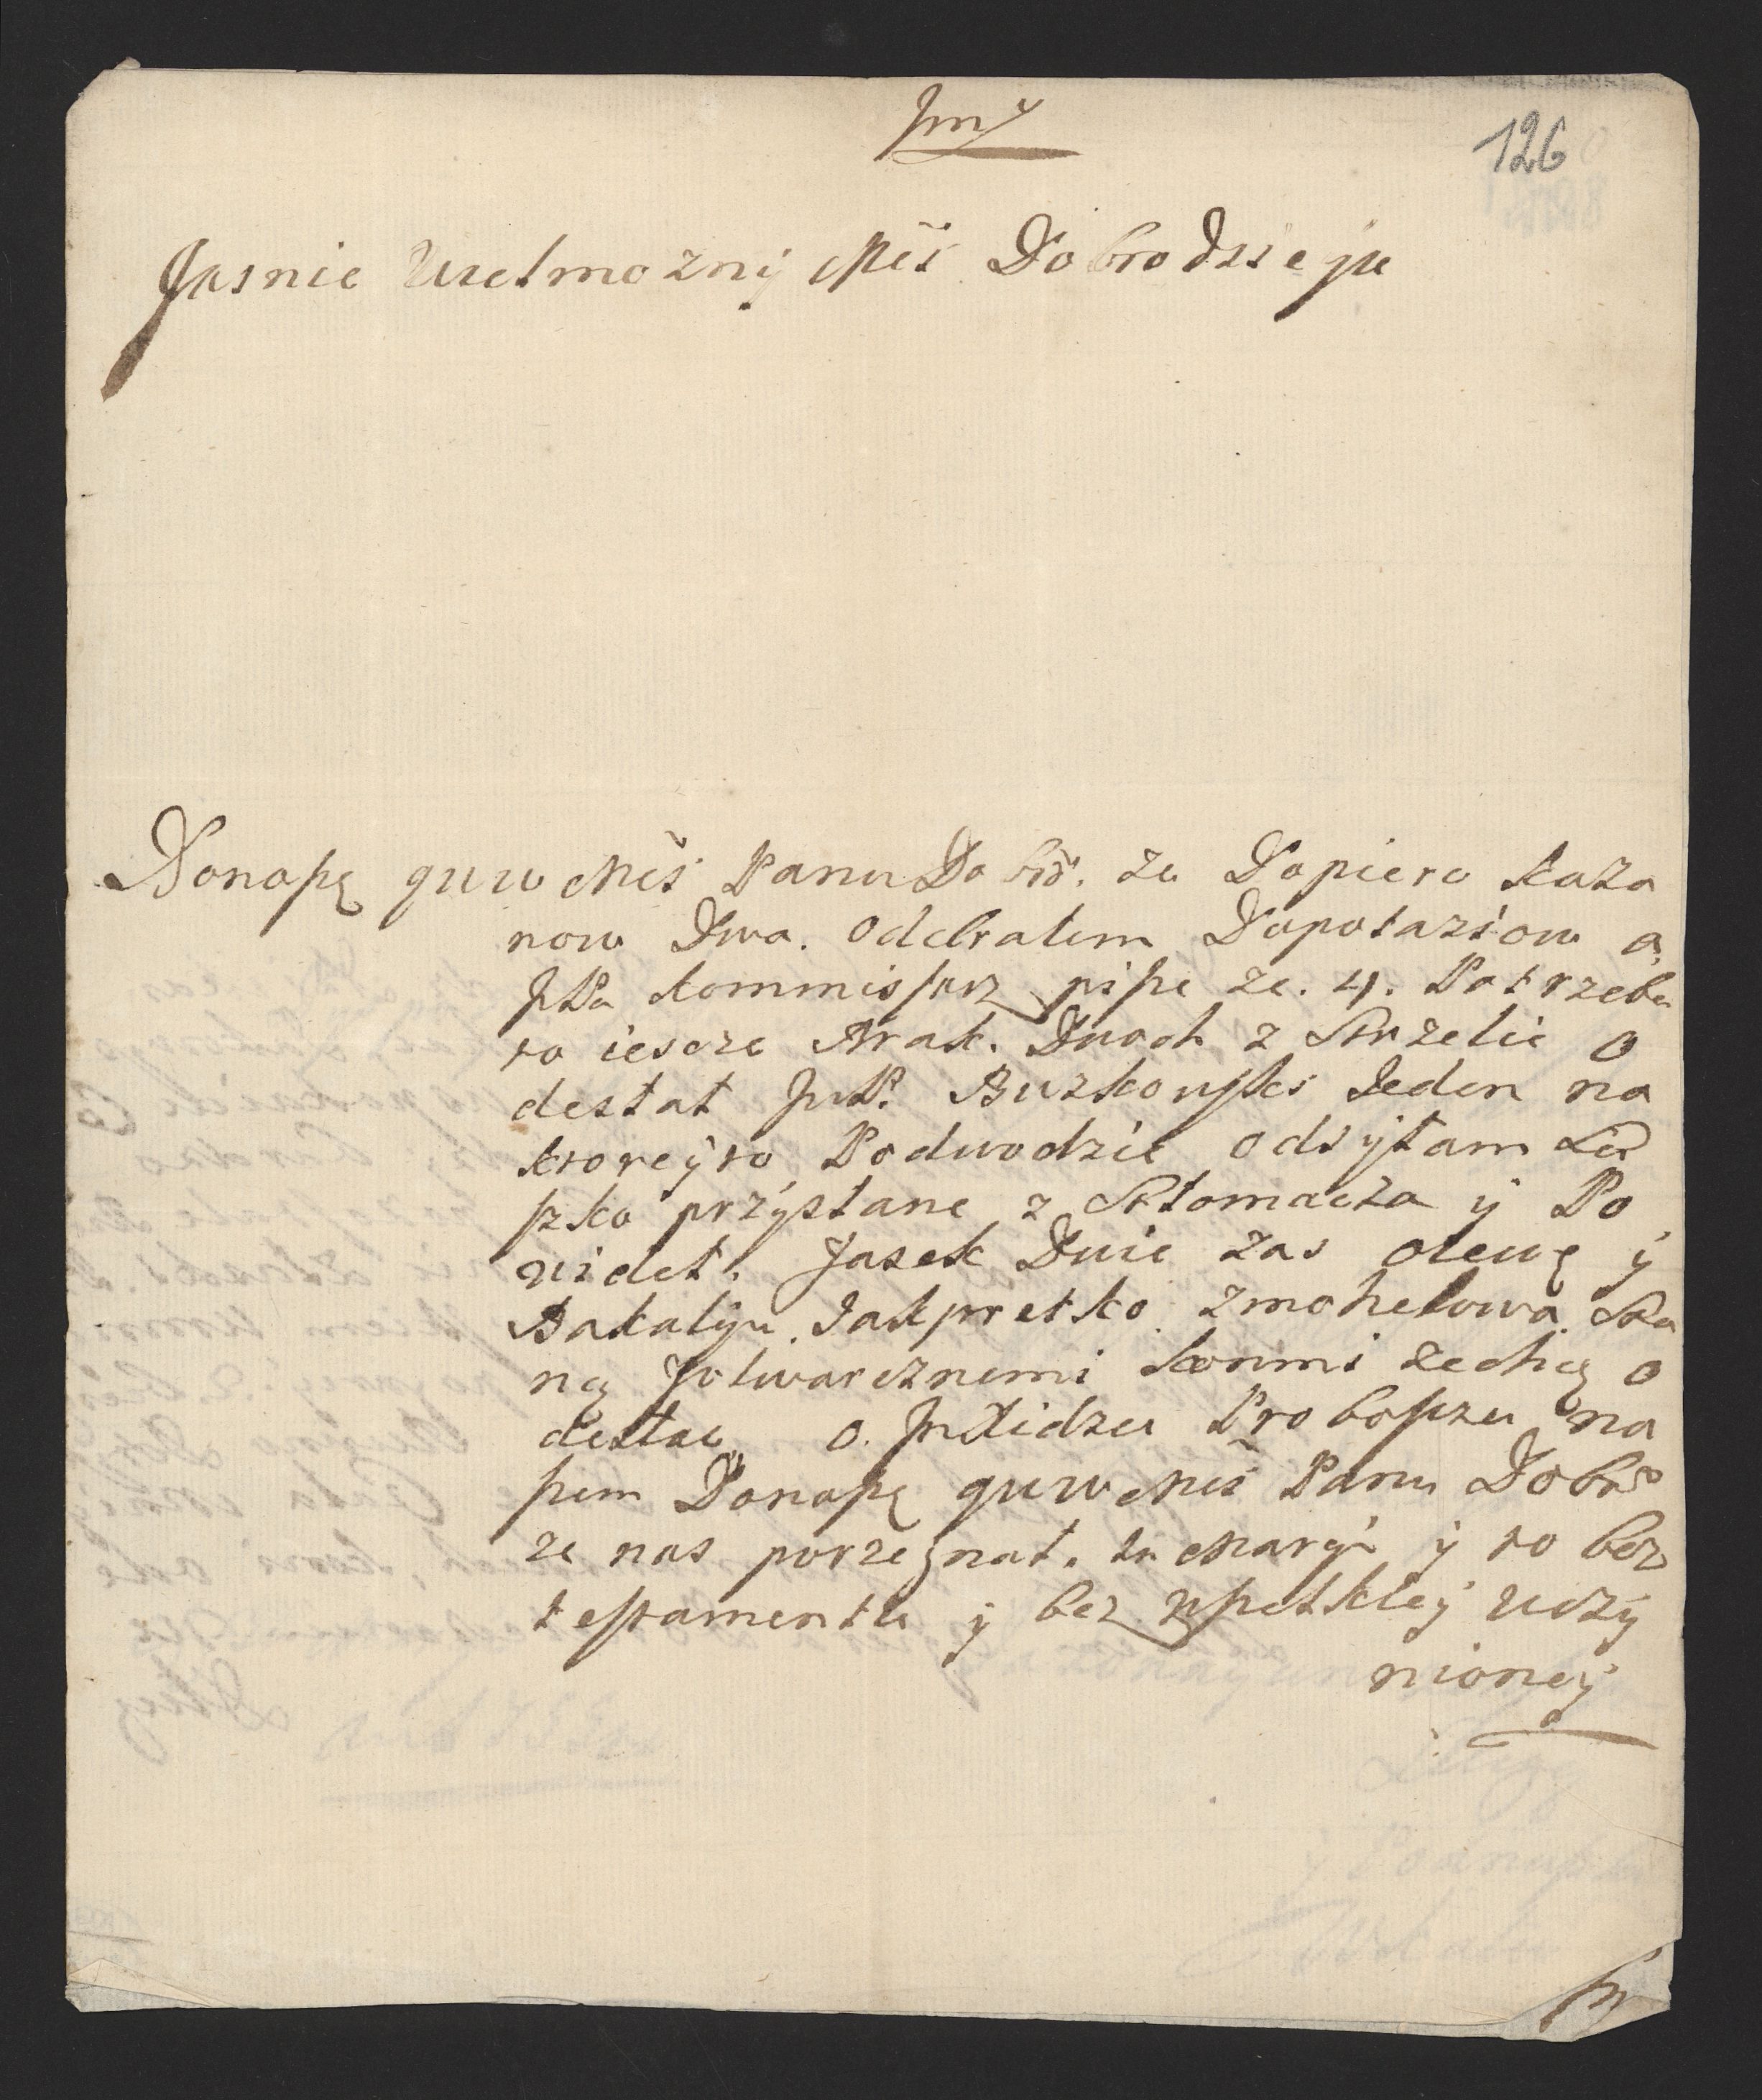 Jmć
126
Jasnie Wielmozny Mći Dobrodzieju
Donoszę JWW Mći Panu Dobr. ze Dopiero Kaza
now Dwa. Odebralem Dopotaziow a
JPa Kommissarz pisze ze. 4. Potrzeba
to iescze Brak. Dwoch z Strzelic o
destat JmP. Buzkowski Jeden na
ktoreyto Podwodzie odsytam Lu
szko przystane z Ttomacza y Po
widet. Jasek Dwie zas olewę y
Bakalyu. Jakpretko zmohelowa. Sta
ną folwarcznemi konmi zechcą o
destac o. Jm Xidzu Proboszczu na
szem Donoszę JWW Mći Panu Dobr
ze nas porzegnat. tu Maryi y to bez
testamentu y bez wszetkiey uczy
nioney